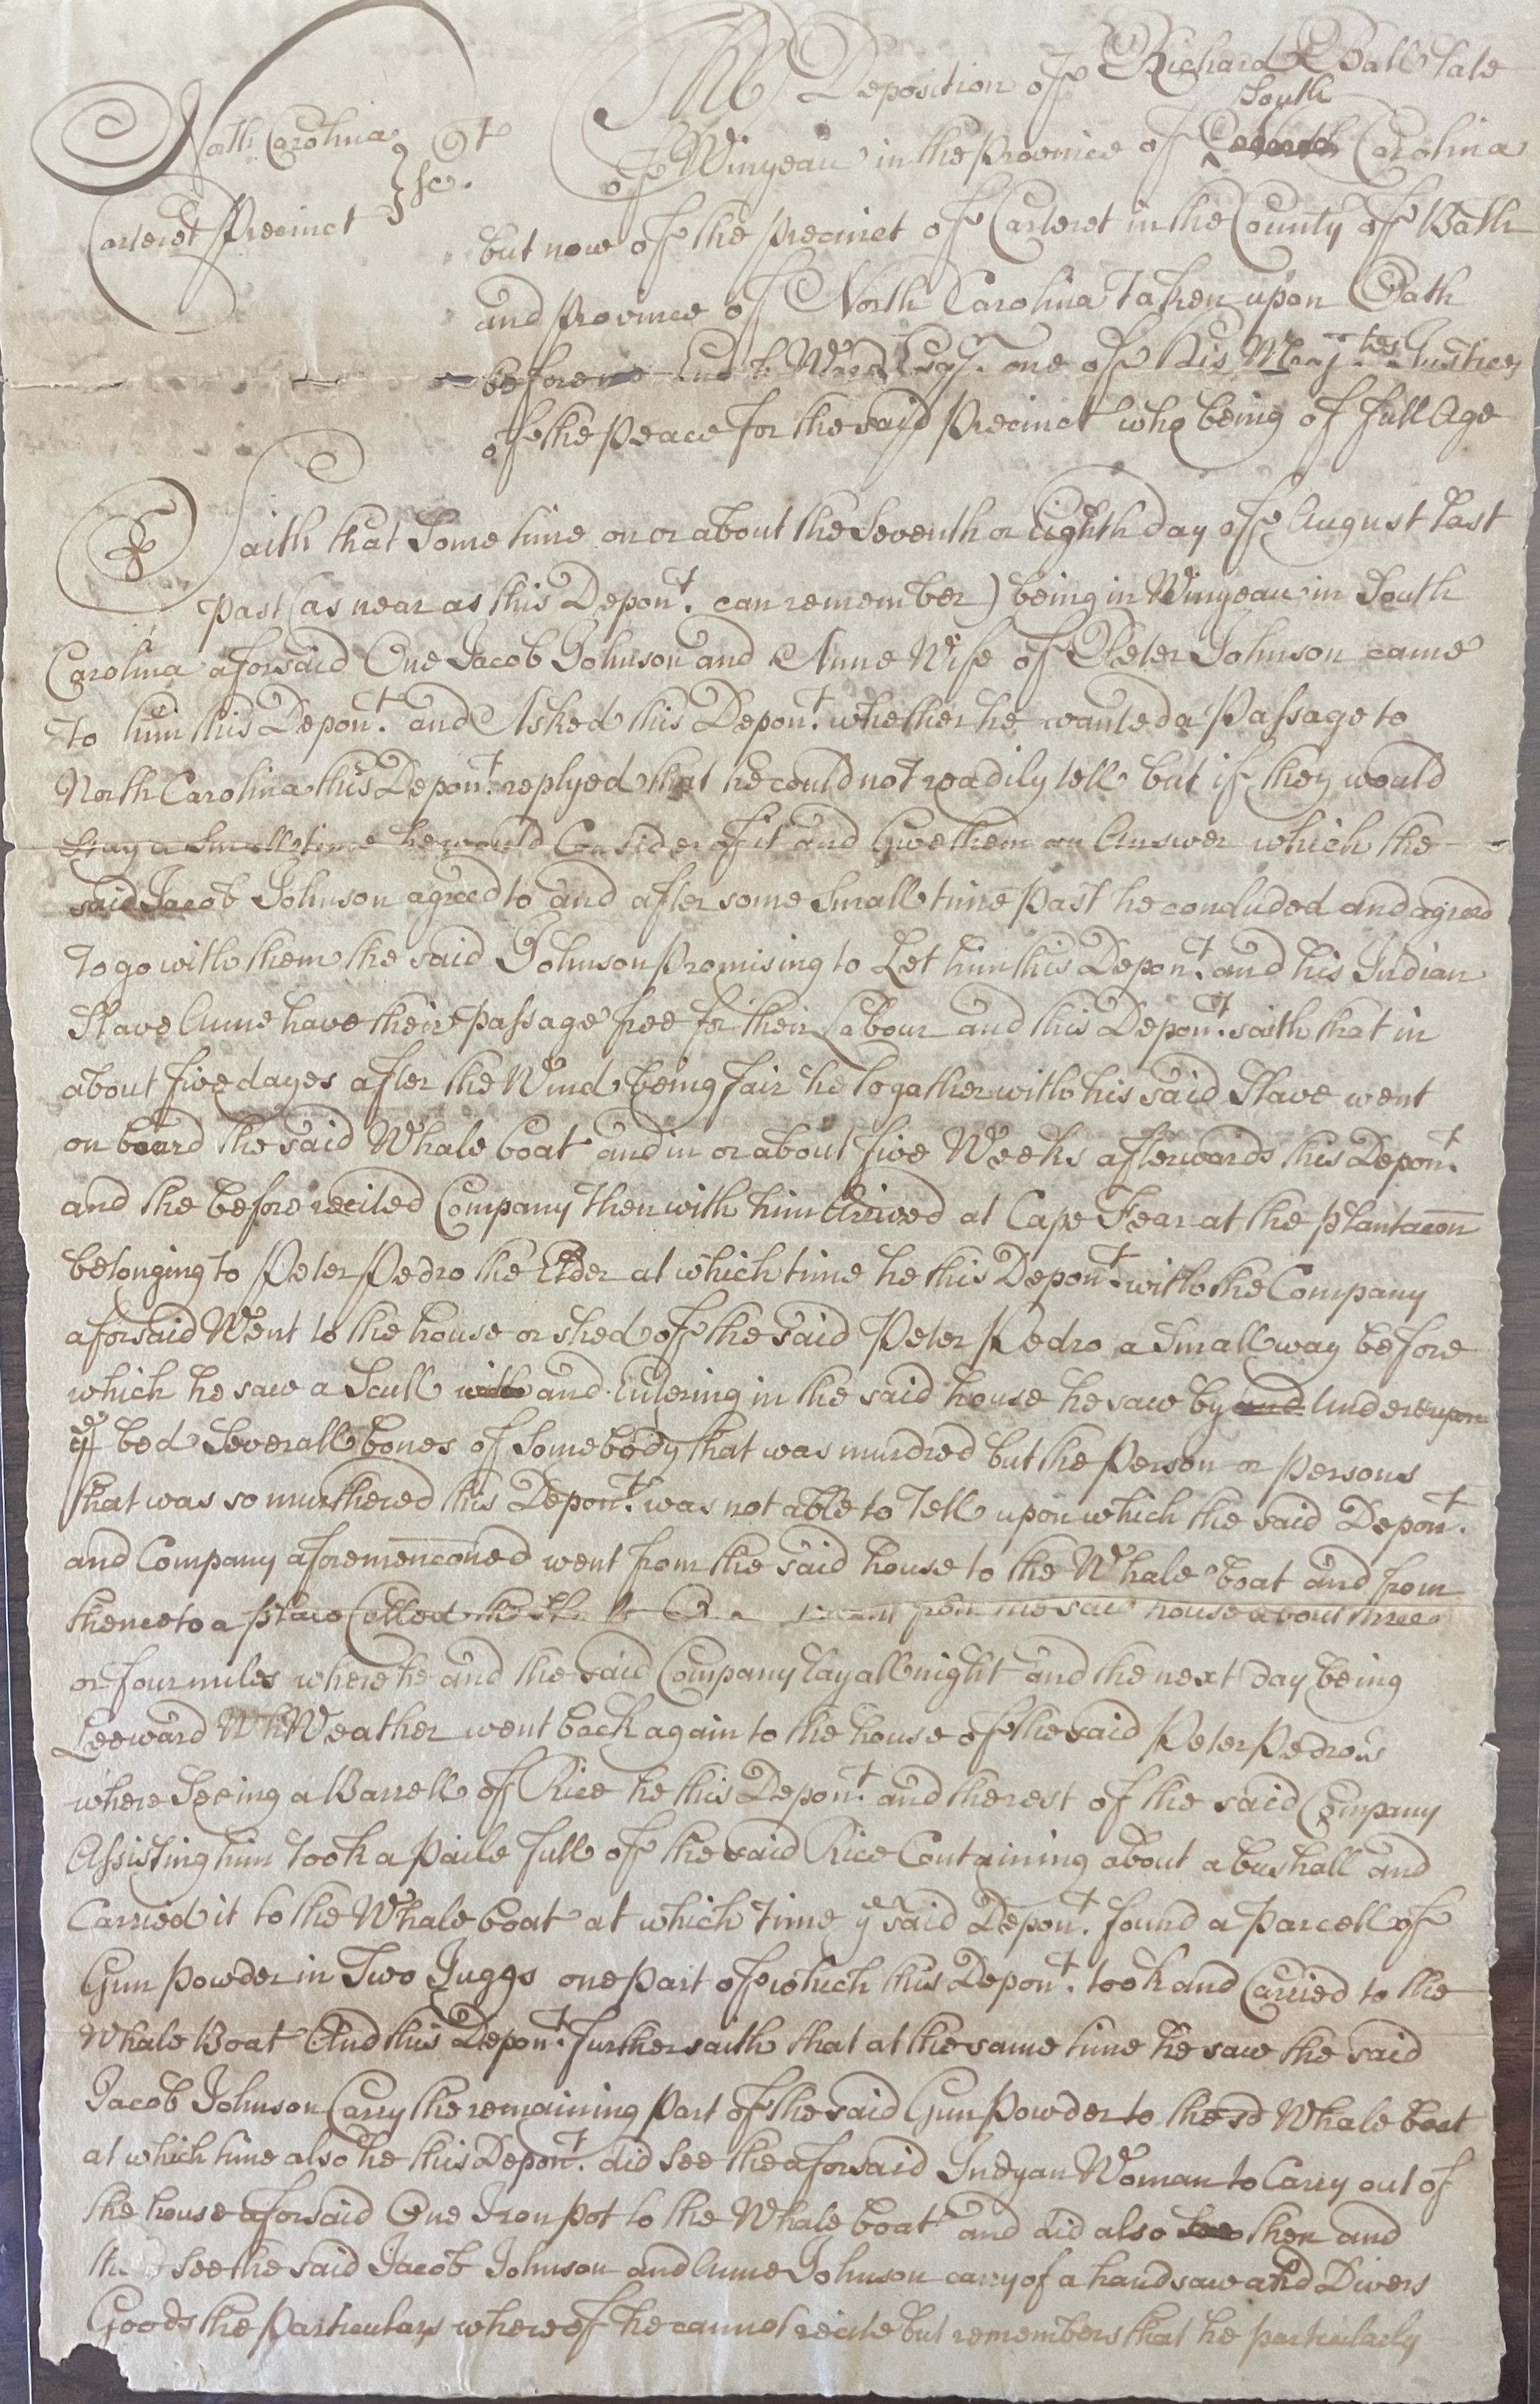 North Carolina
Carteret Precinct } sc.
The Deposition of Richard Ball late
South
of Winyeau in the Province of Carolina
but now of the precinct of Carteret in the County of Bath
and province of North Carolina Taken upon Oath
before Ward Esqr. one of his Majties Justices
of the peace for the said Precinct who being of full Age
Saith that Some time on or about the Seventh or Eighth day off August last
past (as near as this Depont. can remember) being in Winyeau in South
Carolina aforsaid One Jacob Johnson and Anne Wife of Peter Johnson came
To him this Depont. and Asked this Depont. whether he wanted a Passage to
North Carolina this Depont. replyed that he could not readily tell but if they would
Stay a Small time he would Consider of it and Give them an Answer which the
said Jacob Johnson agreed to and after some Small time Past he concluded and agreed
To go with them the said Johnson Promising to Let him this Depont. and his Indian
Slave Anne have their Passage free for their Labour and this Depont. saith that in
about five dayes after the Wind being fair he togather with his said Slave went
on board the said Whale boat and in or about five Weeks afterwards this Depont.
and the before recited Company then with him Arrived at Cape Fear at the plantacon
belonging to Peter Pedro the Elder at which time he this Depont. with the Company
aforsaid Went to the house or shed off the said Peter Pedro a Small way before
which he saw a Scull with and Entering in the said house he saw by and Under
ye bed Severall bones of Somebody that was murdred but the Person or persons
that was so murthered this Depont. was not able to Tell upon which the said Depont.
and Company aforemenconed went from the said house to the Whale boat and from
thence to a place Called the from the said house about three
or four miles where he and the said Company lay all night and the next day being
Leeward Weather went back again to the house of the said Peter Pedro's
where Seeing a Barrell of Rice he this Depont. and the rest of the said Company
Assisting him took a paile full of the said Rice Containing about a bushall and
Carried it to the Whale boat at which time ye said Depont. found a Parcell of
Gun powder in Two Juggs one Part off which this Depont. took and Carried to the
Whale Boat And this Depont. further saith that at the same time he saw the said
Jacob Johnson Carry the remaining Part of the said Gun Powder to the sd Whale boat
at which time also he this Depont. did see the aforsaid Indyan Woman to Carry out of
the house aforsaid One Iron pot to the Whale boat and did also see then and
see the said Jacob Johnson and Anne Johnson carry of a handsaw and Divers
Goods the Particulars whereof he cannot recite but remembers that he particularly